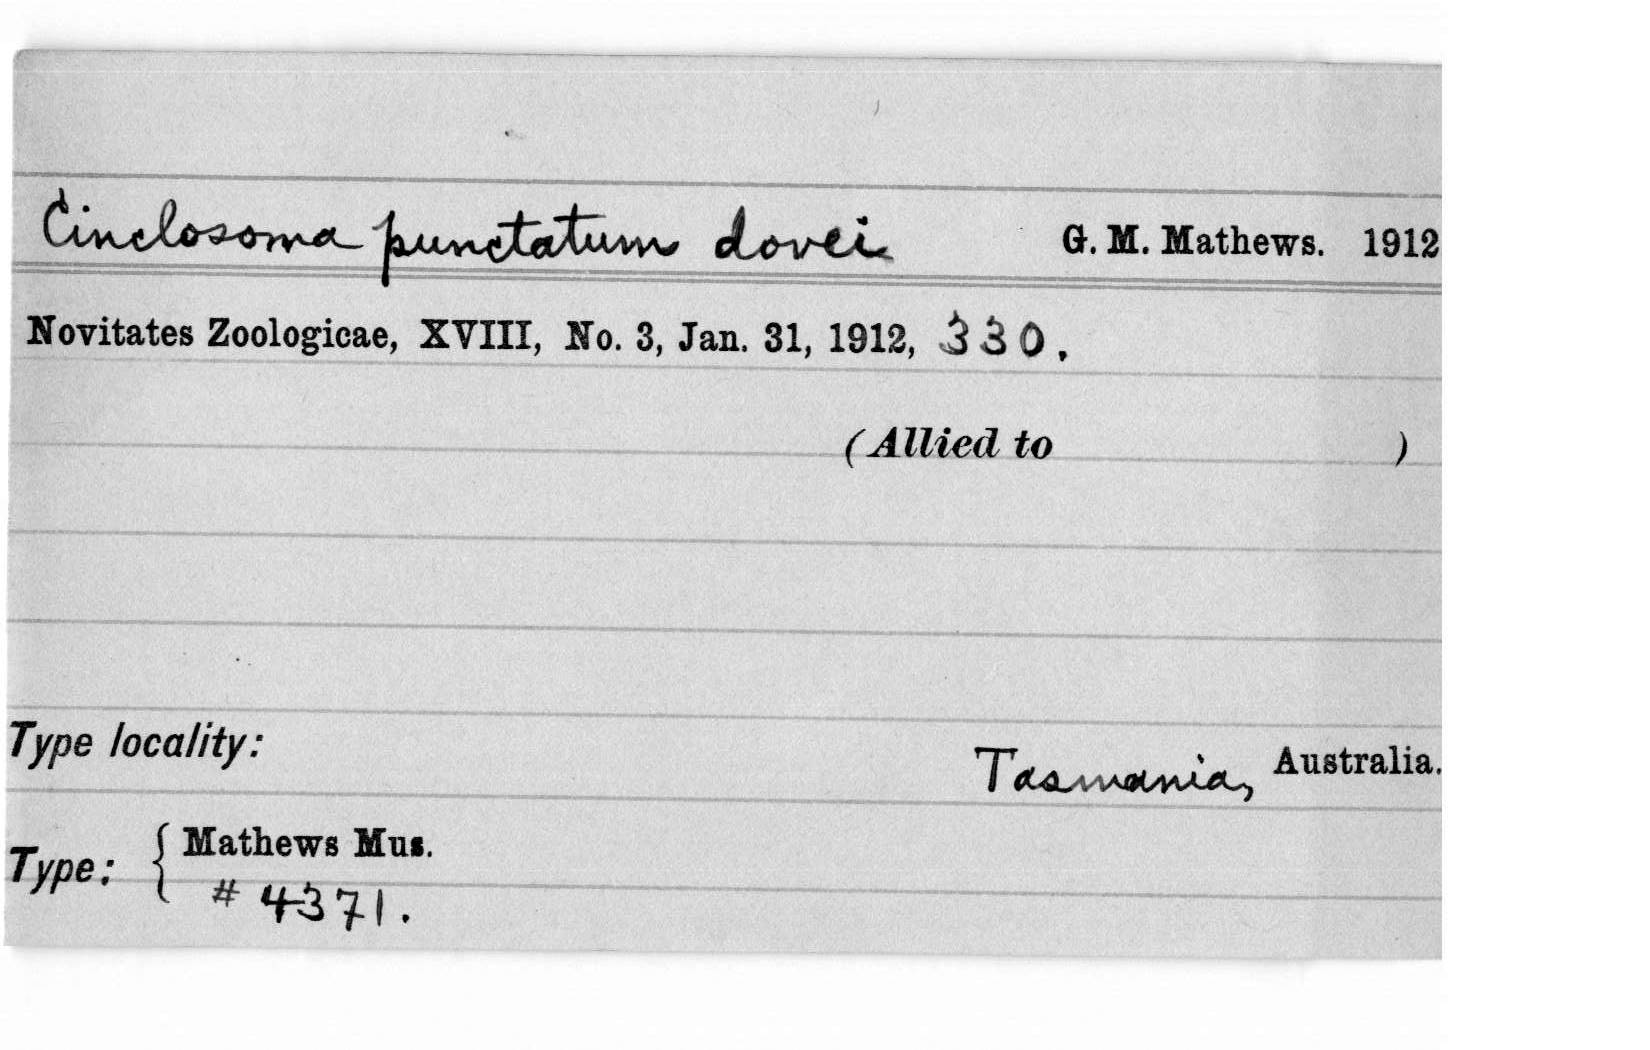 Cinclosoma punctatum dovei G. M. Mathews. 1912
Novitates Zoologicae, XVIII, No. 3, Jan. 31, 1912, 330.
(Allied to )
Type locality: Tasmania, Australia.
Type: { Mathews Mus.
# 4371.